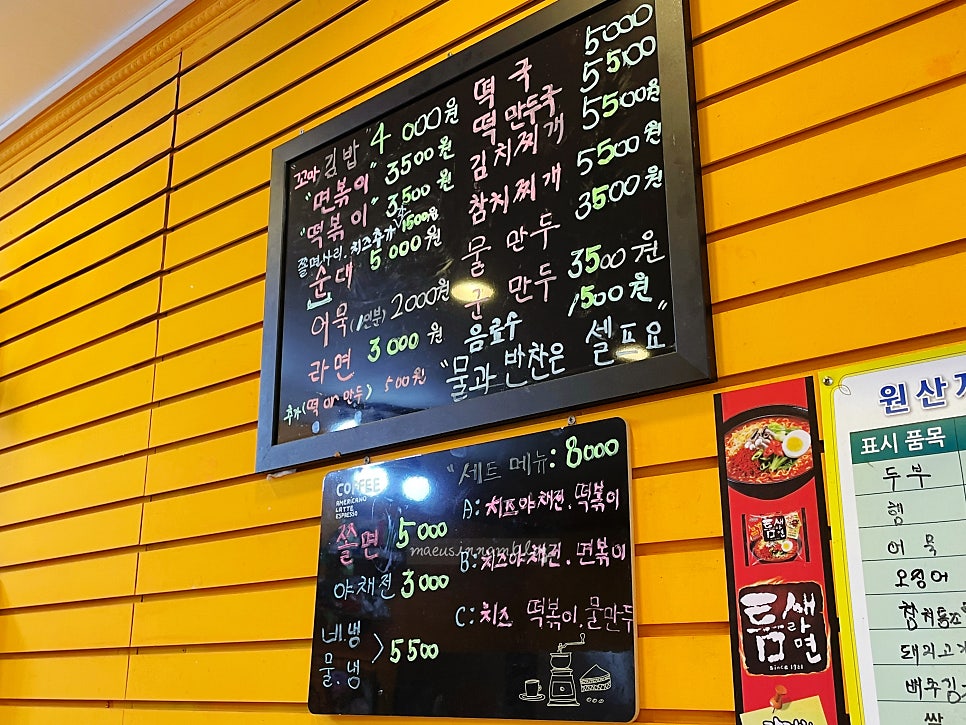 "꼬마김밥" 4000원
"면볶이" 3500원
"떡볶이" 3500원
쫄면사리.치즈추가 1500원
순대 5000원
어묵(1인분) 2000원
라면 3000원
추가(떡 or 만두) 500원
떡국 5000
떡만두국 5500
김치찌개 5500원
참치찌개 5500원
물만두 3500원
군만두 3500원
음료수 1500원
"물과 반찬은 셀프요"
COFFEE
AMERICANO
LATTE
ESPRESSO
쫄면 5000
야채전 3000
비.냉
물.냉 > 5500
"세트 메뉴: 8000
A: 치즈야채전.떡볶이
B: 치즈야채전.면볶이
C: 치즈 떡볶이.물만두
틈새라면
since 1981
원산지
표시 품목
두부
햄
어묵
오징어
참치통조
돼지고기
배추김
쌀